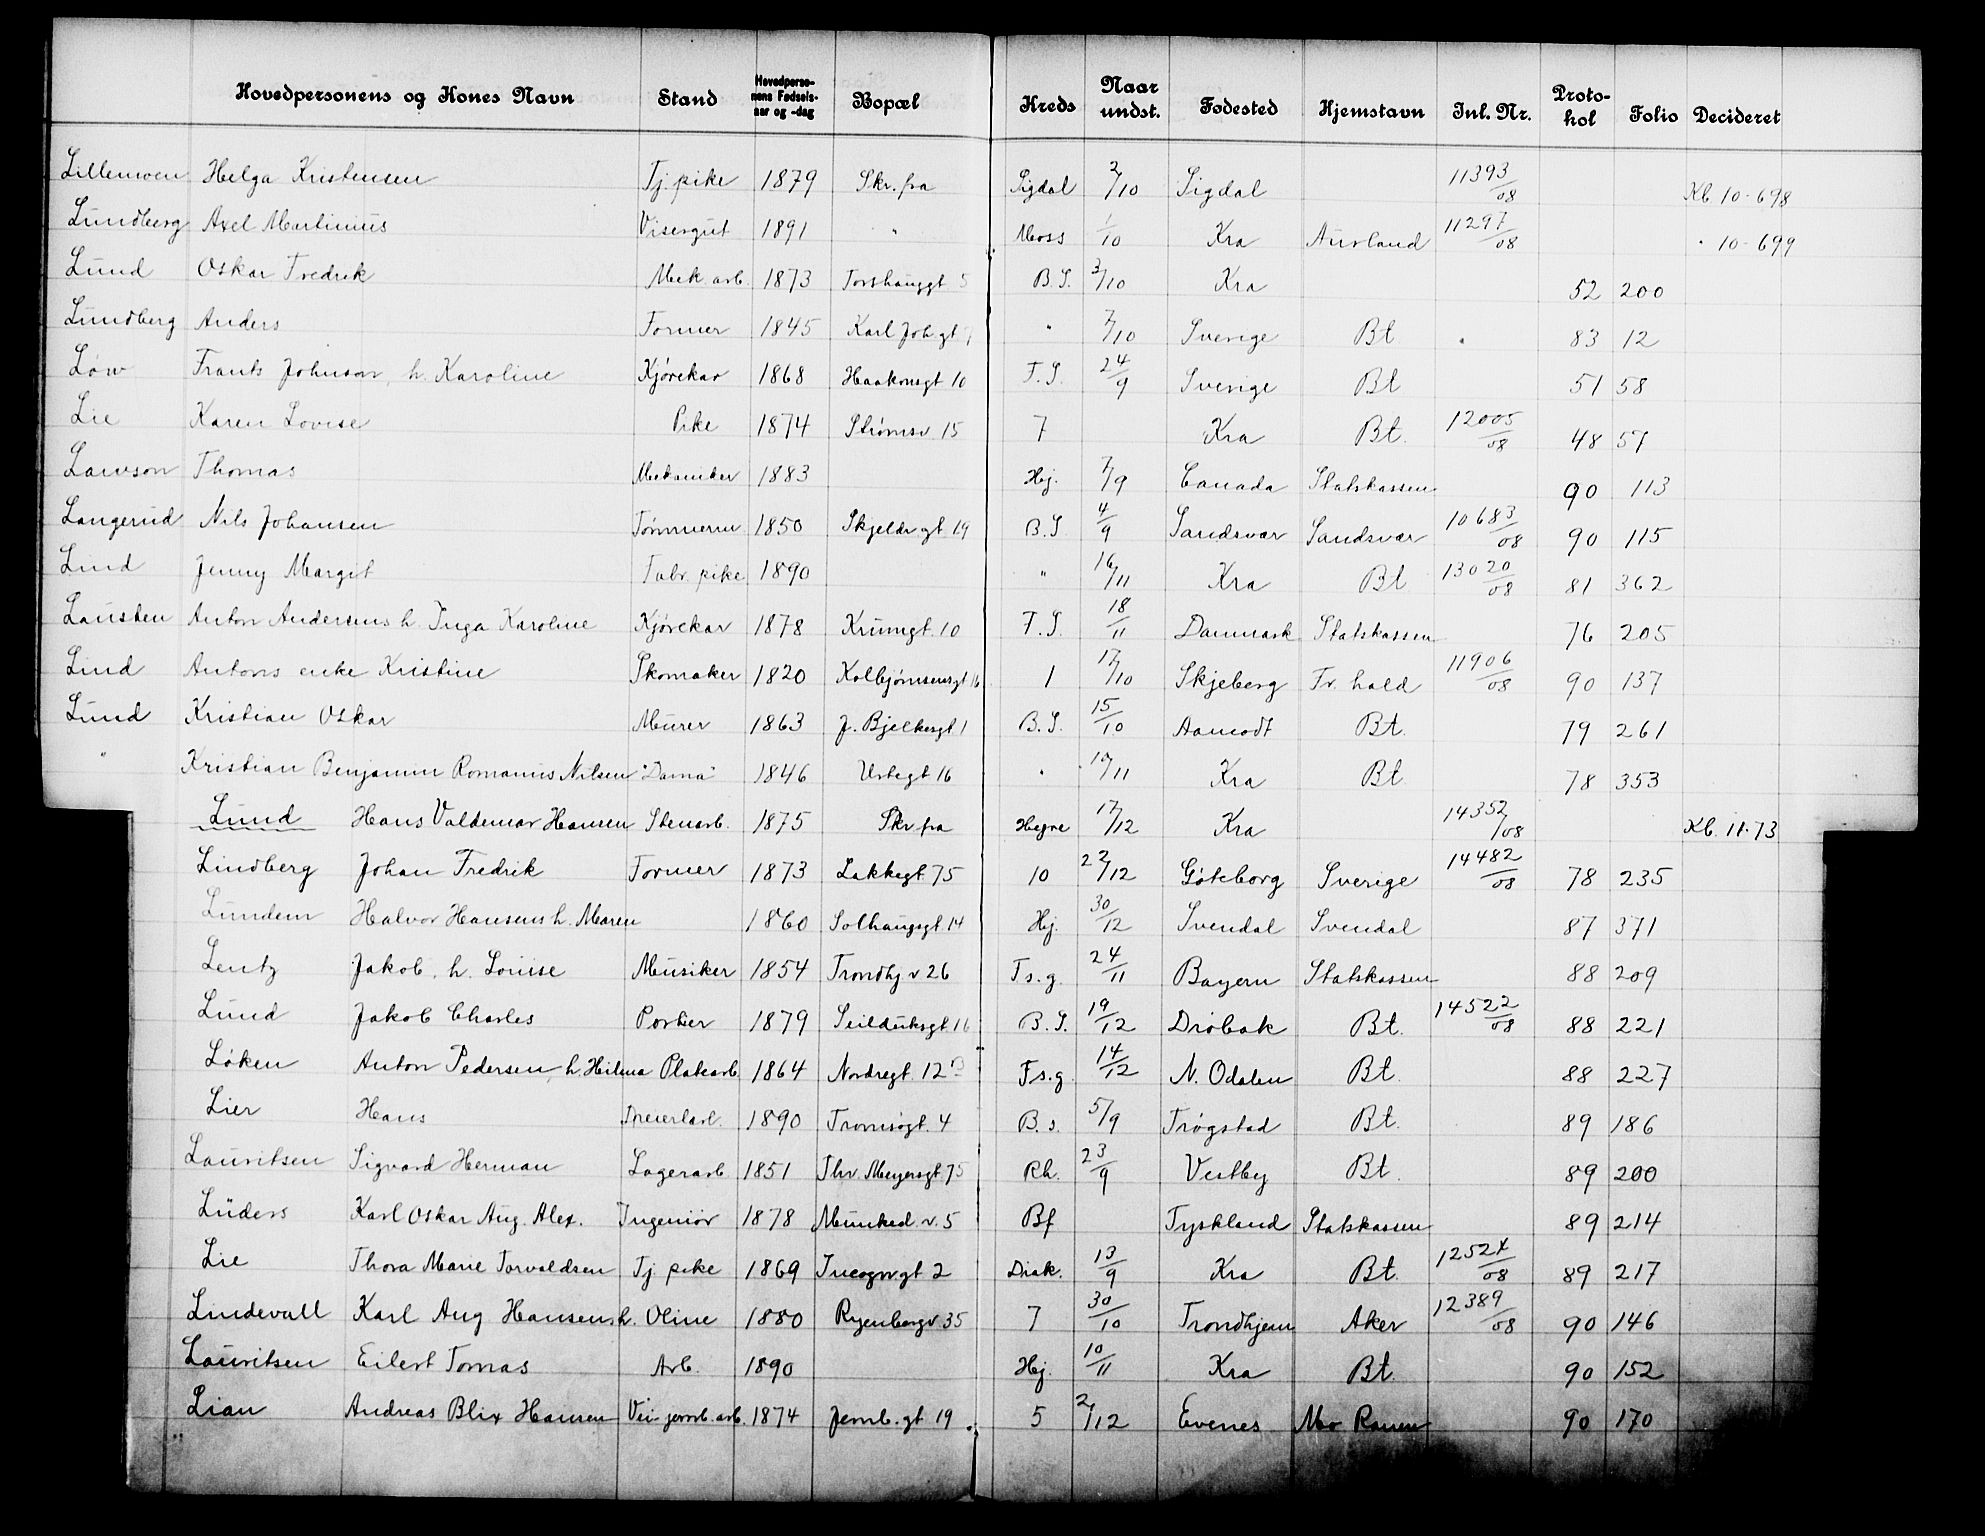 Hovedpersonens og Kones Navn Stand Hovedperso-nens Fødsels-aar og -dag Bopæl Kreds Naar undst. Fødested Hjemstavn Inl. Nr. Proto-kol Folio Decideret
Lillemoen Helga Kristensen Tj. pike 1879 Skr. fra Sigdal 2/10 Sigdal 11393/08 Kb. 10-698
Lundberg Axel Martinius Visergut 1891 " Moss 1/10 Kra Aurland 11297/08 " 10-699
Lund Oskar Fredrik Mek. arb. 1873 Torshauggt 5 B.S. 3/10 Kra 52 200
Lundberg Anders Former 1845 Karl Joh gt 7 " 7/10 Sverige Bt 83 12
Løw Frants Johnson, h. Karoline Kjørekar 1868 Haakonsgt 10 F.S. 24/9 Sverige Bt 51 58
Lie Karen Lovise Pike 1874 Strømsv 15 7 Kra Bt. 12005/08 48 57
Lawson Thomas Mekaniker 1883 Hj. 7/9 Canada Statskassen 90 113
Langerud Nils Johansen Tømmerm 1850 Skjeldr gt 19 B.S 4/9 Sandsvær Sandsvær 10683/08 90 115
Lind Jenny Margit Fabr. pike 1890 " 16/11 Kra Bt 13020/08 81 362
Lausten Anton Andersens h. Inga Karoline Kjørekar 1878 Krumgt. 10 F.S. 18/11 Danmark Statskassen 76 205
Lind Antons enke Kristine Skomaker 1820 Kolbjørnsensgt 16 1 17/10 Skjeberg Fr. hald 11906/08 90 137
Lund Kristian Oskar Murer 1863 J. Bjelkesgt 1 B.S. 15/10 Aamodt Bt. 79 261
" Kristian Benjamin Romanus Nilsen "Dama" 1846 Urtegt 16 " 19/11 Kra Bt. 78 353
Lund Hans Valdemar Hansen Stenarb. 1875 Skr fra Hegre 17/12 Kra 14352/08 Kb. 11-73
Lindberg Johan Fredrik Former 1873 Lakkegt 75 10 22/12 Göteborg Sverige 14482/08 78 235
Lundem Halvor Hansens h. Maren 1860 Solhaugsgt. 14 Hj. 30/12 Svendal Svendal 87 371
Lentz Jakob, h. Louise Musiker 1854 Trondhj. v 26 Fs.g. 24/11 Bayern Statskassen 88 209
Lund Jakob Charles Portier 1879 Seilduksgt. 16 B.S. 19/12 Drøbak Bt. 14522/08 88 221
Løken Anton Pedersen, h. Hilma Platearb. 1864 Nordregt. 12 B Fs.g. 14/12 N. Odalen Bt. 88 227
Lier Hans Dreierlærl. 1890 Tromsøgt. 4 B.s. 5/9 Trøgstad Bt. 89 186
Lauritsen Sigvard Herman Lagerarb. 1851 Thv. Meyersgt. 75 Rh. 23/9 Vestby Bt. 89 200
Lüders Karl Oskar Aug. Alex. Ingeniør 1878 Munked. v. 5 Bf Tyskland Statskassen 89 214
Lie Thora Marie Torvaldsen Tj. pike 1869 Incogn. gt 2 Diak. 13/9 Kra Bt. 12524/08 89 217
Lindevall Karl Aug Hansens h. Oline 1880 Ryenbergv 35 7 30/10 Trondhjem Aker 12389/08 90 146
Lauritsen Eilert Tomas Arb. 1890 Hj. 10/11 Kra Bt. 90 152
Lian Andreas Blix Hansen Vei-jernb. arb. 1874 Jernb. gt 19 5 2/12 Evenes Mo Ranen 90 170